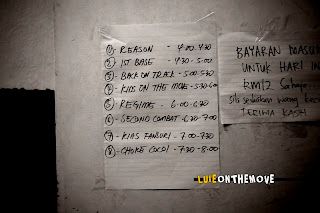 ① REASON - 4.00-4.30
② 1ST BASE - 4.30-5.00
③ BACK ON TRACK - 5.00-5.30
④ KIDS ON THE MOVE - 5.30-6.00
⑤ REGIME - 6.00-6.30
⑥ SECOND COMBAT - 6.30-7.00
⑦ KIAS FANSURI - 7.00-7.30
⑧ CHOKE COLD! - 7.30-8.00
BAYARAN MASUK
UNTUK HARI IN
RM12 Sahaja
Sila sediakan wang
TERIMA KASIH
LUIEONTHEMOVE